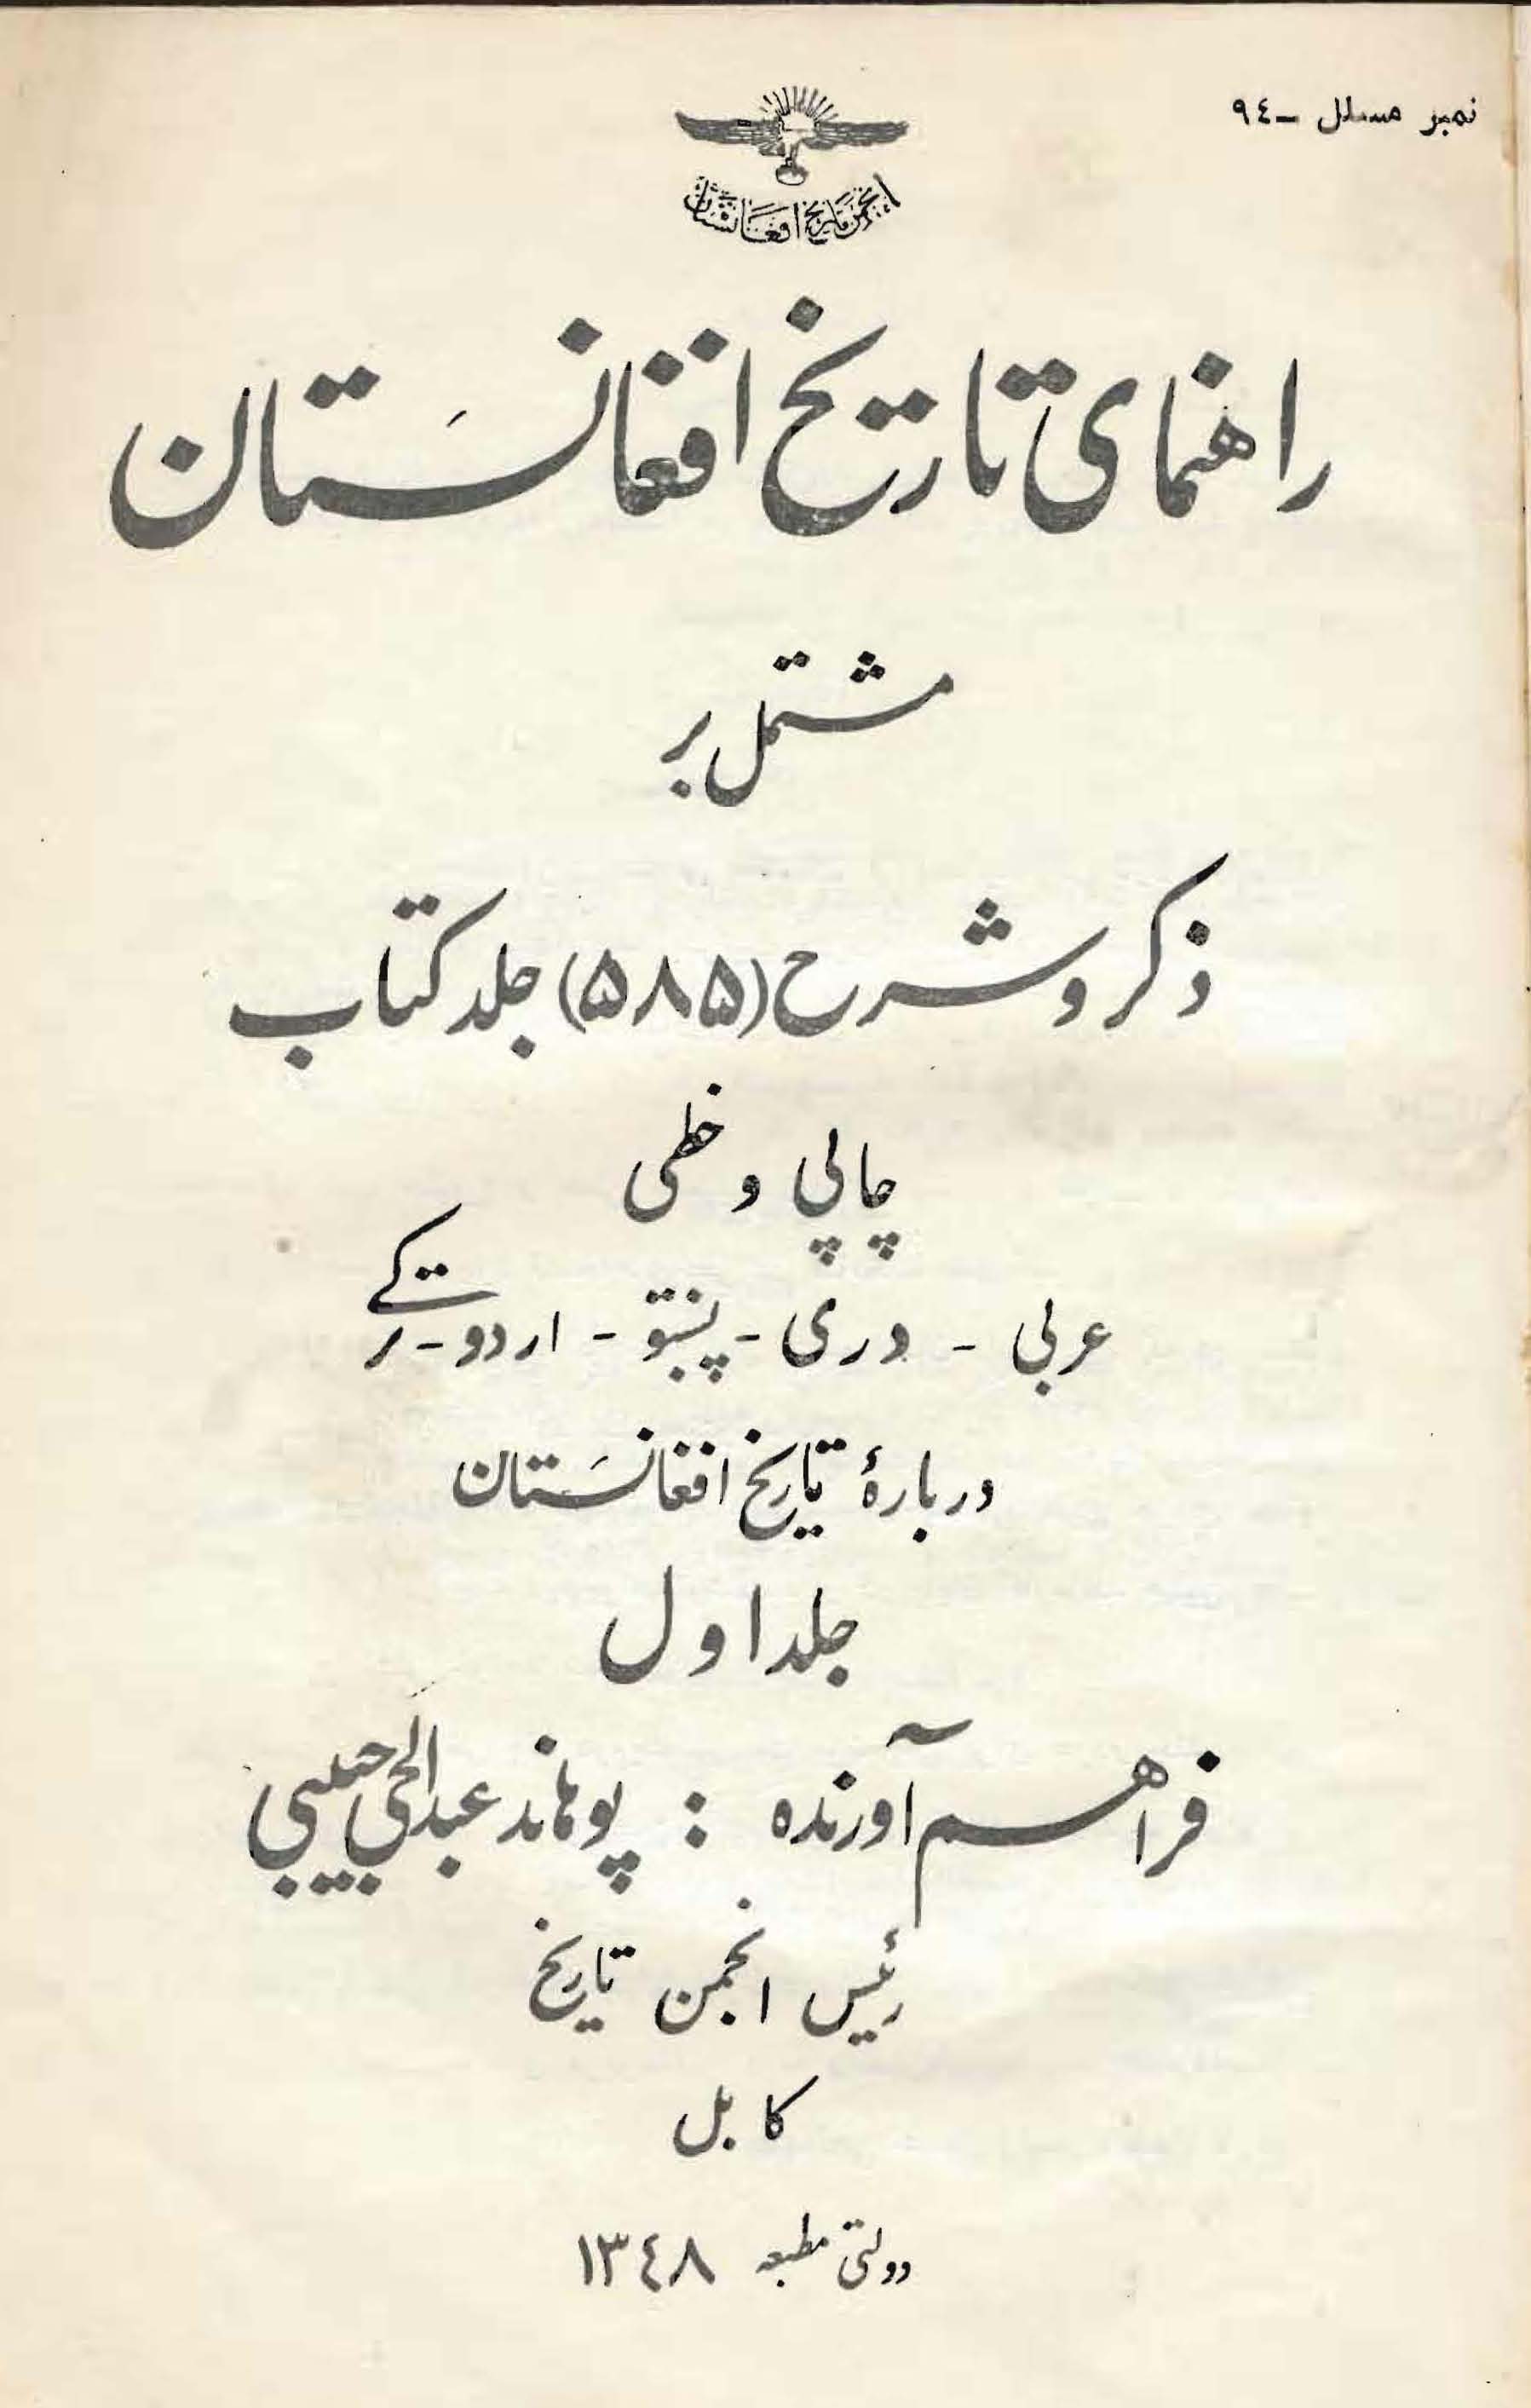 نمبر مسلسل -٩٤
انجمن تاریخ افغانستان
راهنمای تاریخ افغانستان
مشتمل بر
ذکر و شرح (۵۸۵) جلد کتاب
چاپی و خطی
عربی - دری - پښتو - اردو - ترکی
دربارهٔ تاریخ افغانستان
جلد اول
فراهم آورنده : پوهاند عبدالحی حبیبی
رئیس انجمن تاریخ
کابل
دولتی مطبعه ١٣٤٨